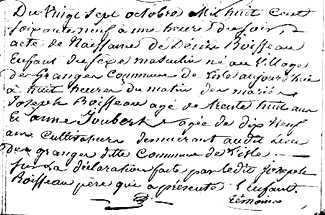 Du Vingt Sept octobre Mil huit Cent
Soixante neuf à une heure du soir,
acte de Naissance de Désiré Boisseau
Enfant du sexe masculin né au Village
des Granges Commune de aujourd'hui
à huit heures du matin des mariés
Joseph Boisseau agé de trente huit ans
Et anne Joubert agée de dix neuf
ans Cultivateurs demeurant audit lieu
des granges ditte Commune de
Sur La déclaration faite par ledit Joseph
Boisseau père qui a présenté l'enfant
témoins